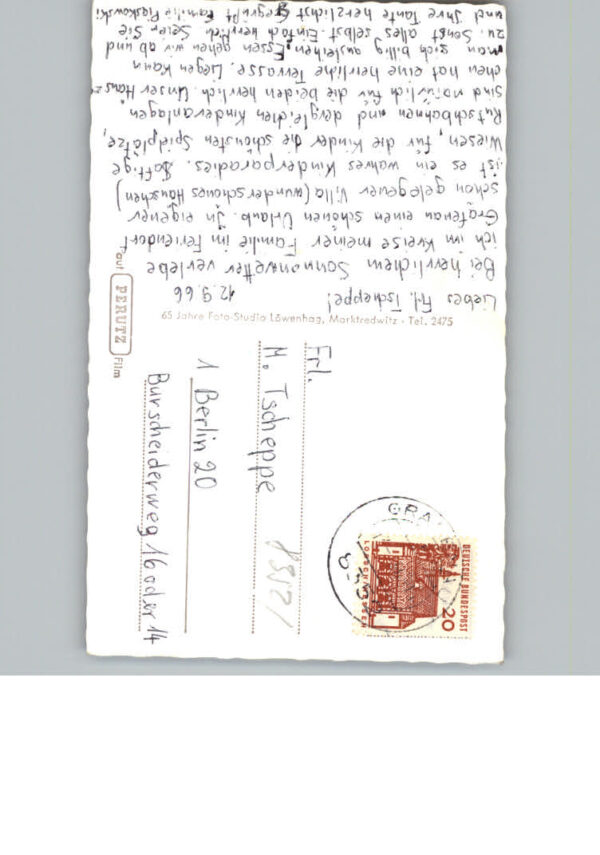 Liebes Frl. Tscheppe! 12.9.66
Bei herrlichem Sonnenwetter verlebe
ich im Kreise meiner Familie im Feriendorf
Grafenau einen schönen Urlaub. In eigener
schön gelegener Villa (wunderschönes Häuschen)
ist es ein wahres Kinderparadies. Saftige
Wiesen, für die Kinder die schönsten Spielplätze,
Rutschbahnen und dergleichen Kinderanlagen
sind natürlich für die beiden herrlich. Unser Häus-
chen hat eine herrliche Terrasse. Liegen kann
man sich billig ausleihen. Essen gehen wir ab und
zu. Sonst alles selbst. Einfach herrlich. Seien Sie
und Ihre Tante herzlichst gegrüßt Familie
65 Jahre Foto-Studio Löwenhag, Marktredwitz · Tel. 2475
PERUTZ
Film
Frl.
M. Tscheppe
1 Berlin 20
Burscheiderweg 16 oder 14
DEUTSCHE BUNDESPOST
20